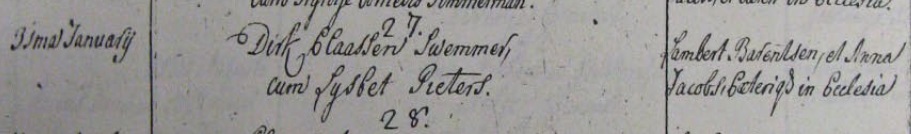 27.
Isma January
Dirk Claassen Swemmer,
cum Lysbet Pieters.
Lambert Barentsen, et Anna
Jacobs, in Ecclesia
28.